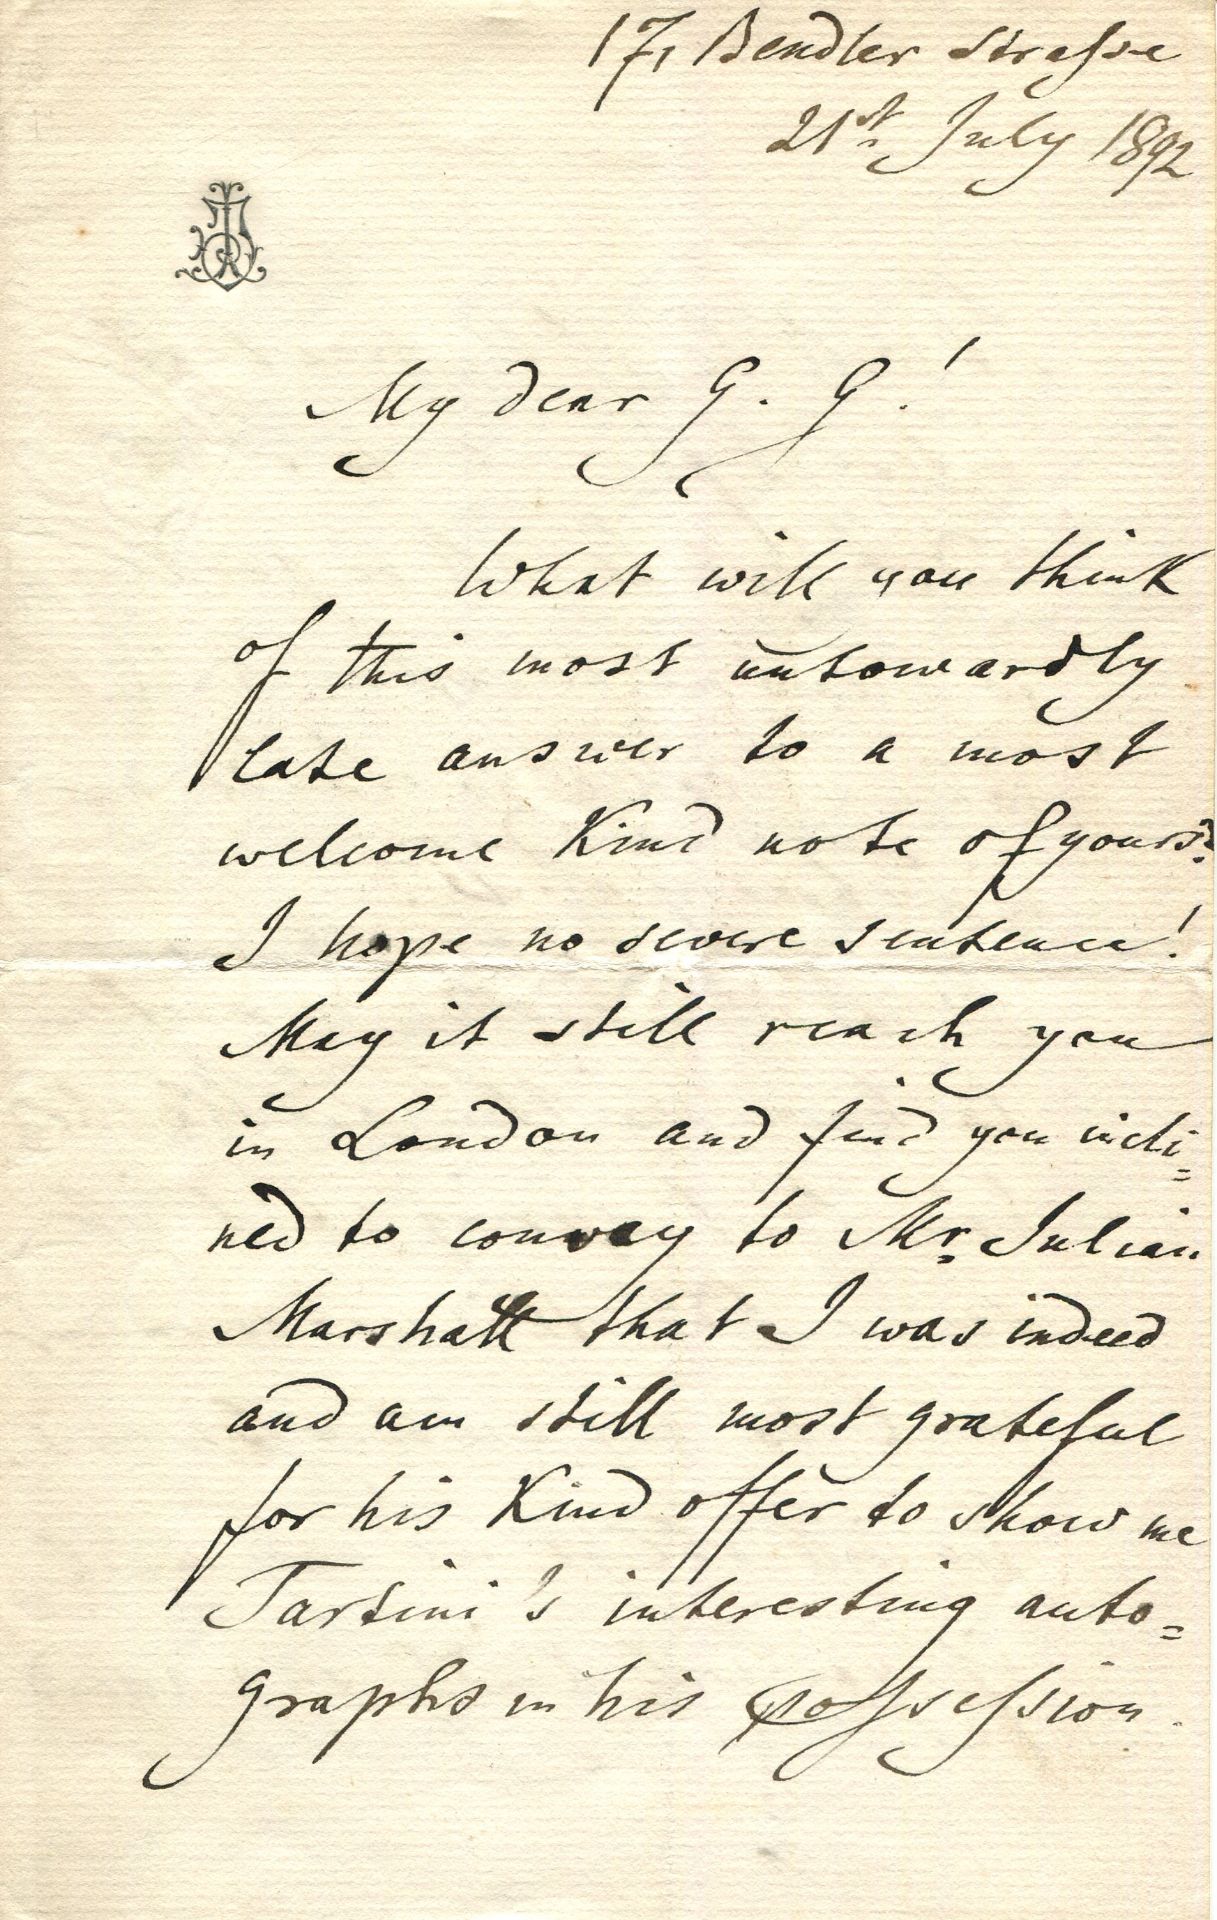 17, Bendler Straſse
21st. July 1892
My dear G. G!
What will you think
of this most untowardly
late answer to a most
welcome Kind note of yours?
I hope no severe sentence!
May it still reach you
in London and find you incli=
ned to convey to Mr. Julian
Marshall that I was indeed
and am still most grateful
for his Kind offer to show me
Tartini's interesting auto=
graphs in his poſseſsion.